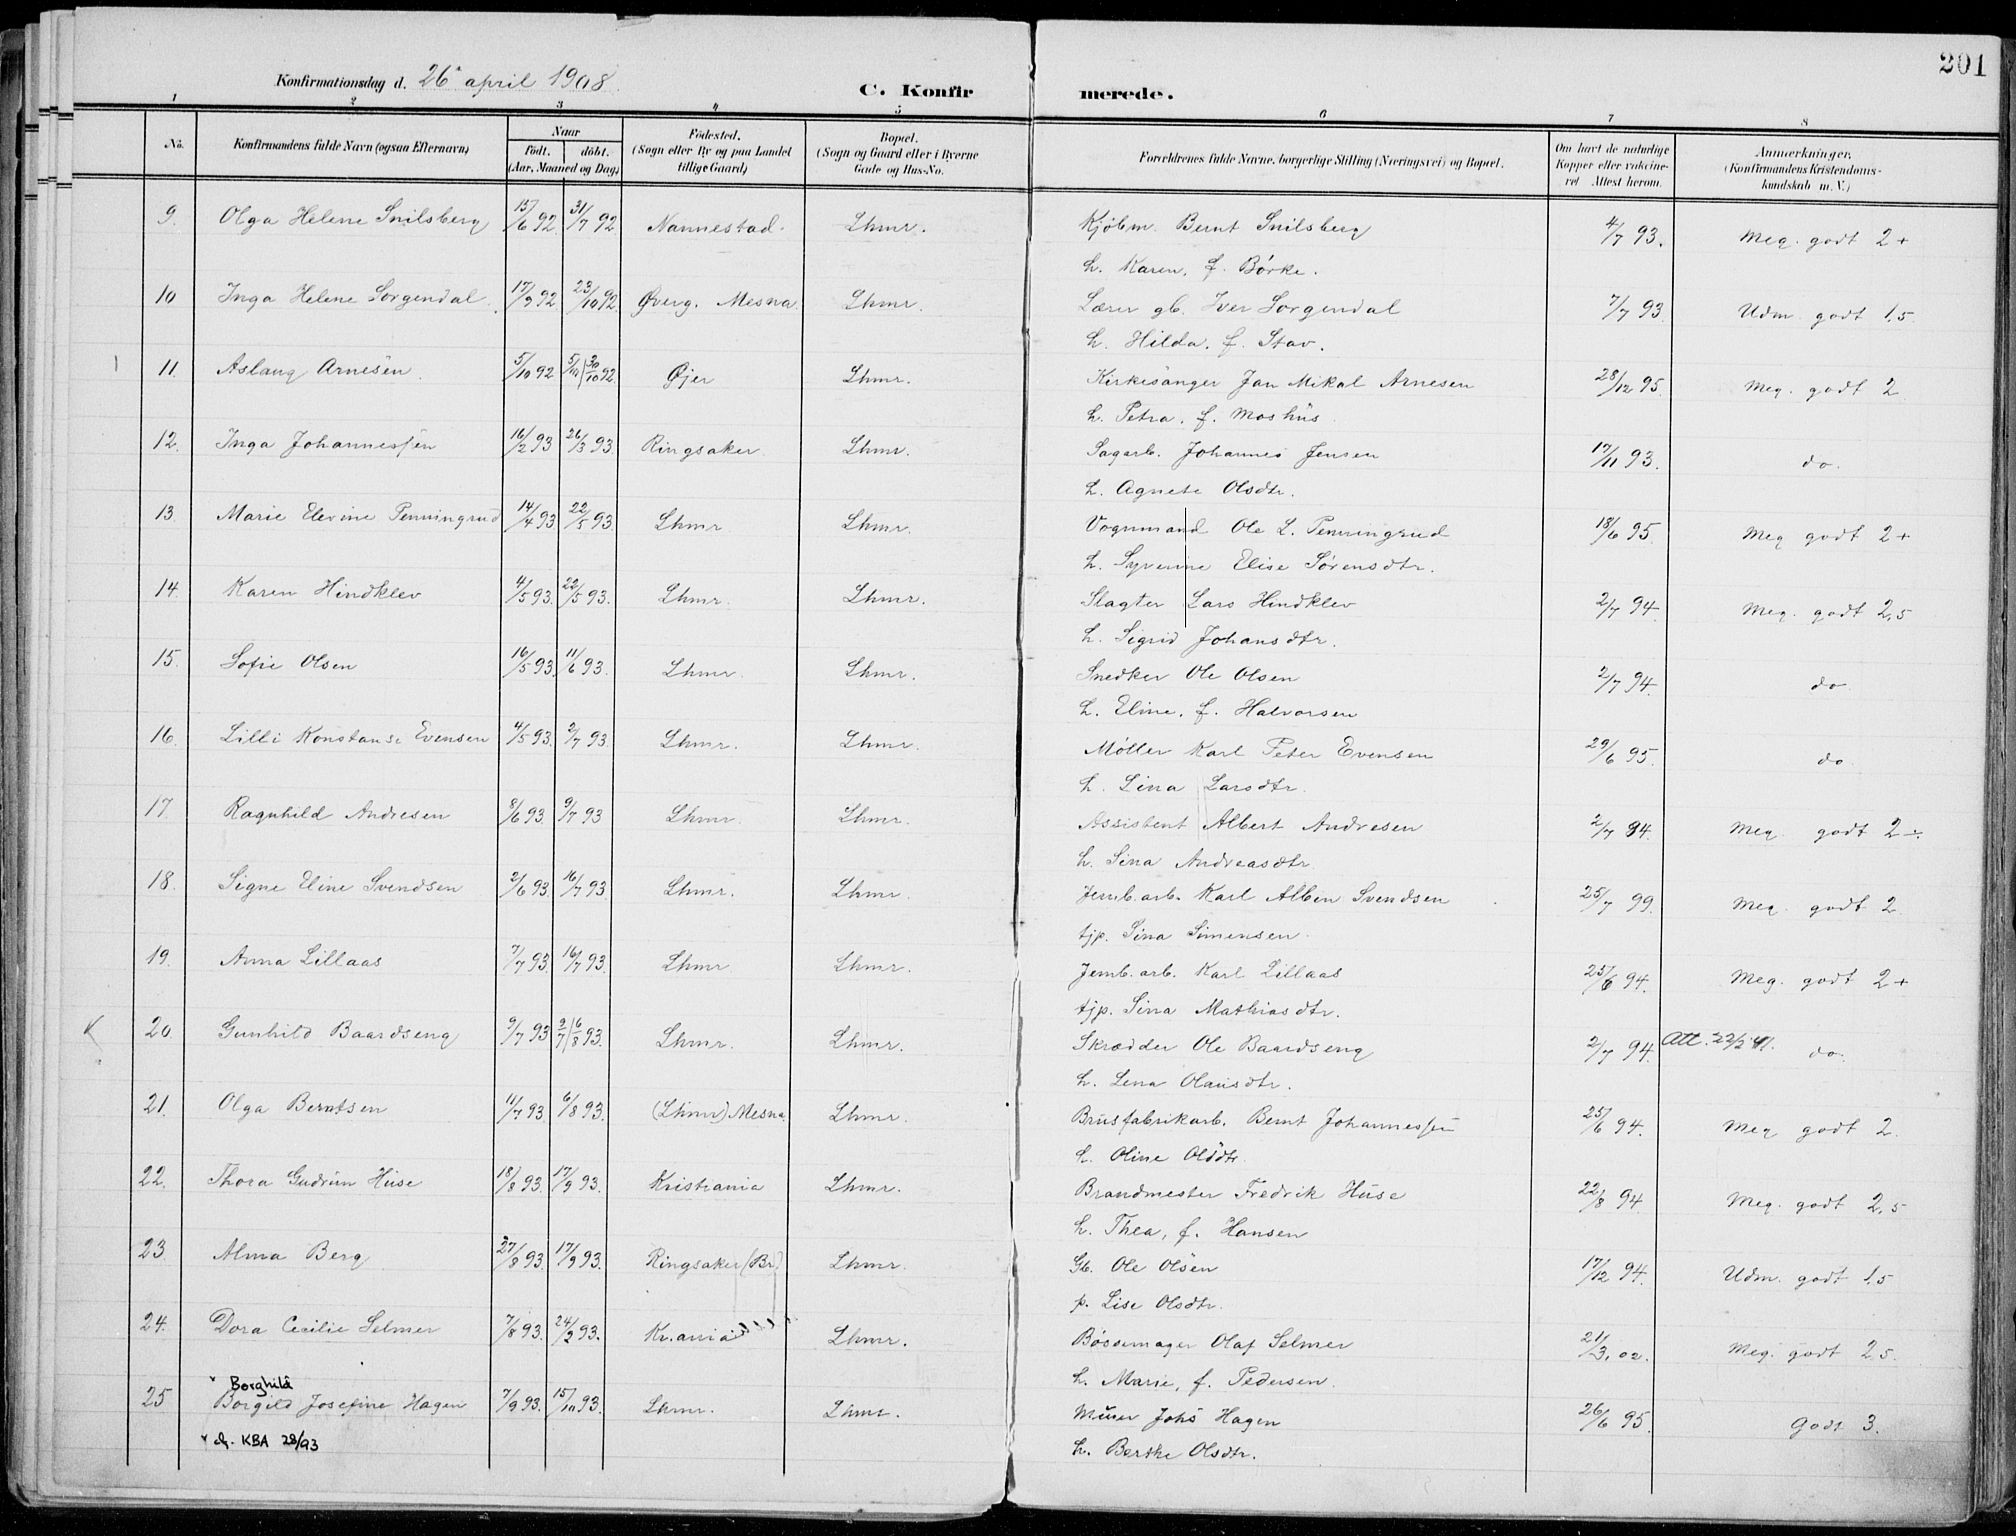 201
Konfirmationsdag d. 26 april 1908.
C. Konfirmerede.
1 2 3 4 5 6 7 8
No. | Konfirmandens fulde Navn (ogsaa Efternavn) | Naar født. døbt. (Aar, Maaned og Dag) | Fødested. (Sogn eller By og paa Landet tillige Gaard) | Bopæl. (Sogn og Gaard eller i Byerne Gade og Hus-No. | Forældrenes fulde Navne, borgerlige Stilling (Næringsvei) og Bopæl. | Om havt de naturlige Kopper eller vaccineret Attest herom. | Anmærkninger. (Konfirmandens Kristendomskundskab m. V.)
9. Olga Helene Snilsberg 15/6 92. 31/7 92 Nannestad. Lhmr. Kjøbm. Bernt Snilsberg 4/7 93. Meg. godt 2+
h. Karen, f. Børke.
10 Inga Helene Sorgendal 17/9 92 23/10 92. Øverg. Mesna Lhmr. Lærer gb. Iver Sorgendal 7/7 93 Udm. godt 1,5.
h. Hilda. f. Stav.
11. Aslaug Arnesen. 5/10 92 5/10 | 30/10 92. Øjer Lhmr. Kirkesanger Jan Mikal Arnesen 28/12 95. Meg. godt 2
h. Petra. f. Moshus.
12. Inga Johannessen 16/2 93 26/3 93. Ringsaker Lhmr. Sagarb. Johannes Jensen 17/11 93. do.
h. Agnete Olsdtr.
13. Marie Elevine Penningrud 14/4 93 22/5 93. Lhmr Lhmr. Vognmand Ole L. Penningrud 18/6 95. Meg godt 2+
h. Syverine Elise Sørensdtr.
14. Karen Hindklev 4/5 93. 22/5 93. Lhmr. Lhmr. Slagter Lars Hindklev 2/7 94. Meg. godt 2,5
h. Sigrid Johansdtr.
15. Sofie Olsen 16/5 93. 11/6 93. Lhmr. Lhmr. Snedker Ole Olsen 2/7 94. do.
h. Eline, f. Halvorsen
16. Lilli Konstanse Evensen 4/5 93. 2/7 93. Lhmr. Lhmr. Møller Karl Peter Evensen 29/6 95. do
h. Lina Larsdtr.
17. Ragnhild Andresen 8/6 93. 9/7 93 Lhmr. Lhmr. Assistent Albert Andresen 2/7 94. Meg. godt 2 ÷
h. Sina Andreasdtr.
18. Signe Eline Svendsen 2/6 93. 16/7 93 Lhmr. Lhmr. Jernb.arb. Karl Albin Svendsen 25/7 99. Meg. godt 2
tjp. Sina Simensen.
19. Anna Lillaas 7/7 93. 16/7 93. Lhmr Lhmr. Jernb.arb. Karl Lillaas 25/6 94. Meg. godt 2+
tjp. Sina Mathiasdtr.
20. Gunhild Baardseng 9/7 93 9/7 | 6/8 93. Lhmr. Lhmr. Skrædder Ole Baardseng 2/7 94. Att. 22/2 41. do.
h. Lena Olausdtr.
21. Olga Berntsen 11/7 93. 6/8 93. (Lhmr) Mesna Lhmr. Brusfabrikarb. Bernt Johannessen 25/6 94. Meg godt 2.
h. Oline Olsdtr.
22. Thora Gudrun Huse 18/8 93. 17/9 93. Kristiania Lhmr. Brandmester Fredrik Huse 22/8 94. Meg. godt 2,5
h. Thea, f. Hansen
23. Alma Berg 27/8 93. 17/9 93. Ringsaker (Br) Lhmr. Gb. Ole Olsen 17/12 94. Udm. godt 1,5
p. Lise Olsdtr.
24. Dora Cecilie Selmer 7/8 93. 24/2 93. Kr.ania Lhmr. Bøssemager Olaf Selmer 21/3. 02. Meg. godt 2,5.
h. Marie, f. Pedersen
Borghild
25 Borgild Josefine Hagen 7/9 93. 15/10 93. Lhmr. Lhmr. Murer Johs Hagen 26/6 95. Godt 3.
cfr. KBA 28/93
h. Berthe Olsdtr.